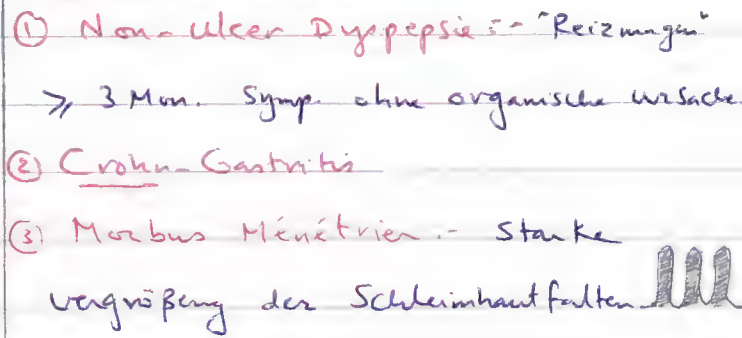 ① Non-Ulcer Dyspepsie :- "Reizmagen"
≥ 3 Mon. Symp. ohne organische ursache.
② Crohn-Gastritis
③ Morbus Ménétrier :- Starke
vergrößerung der Schleimhautfalten